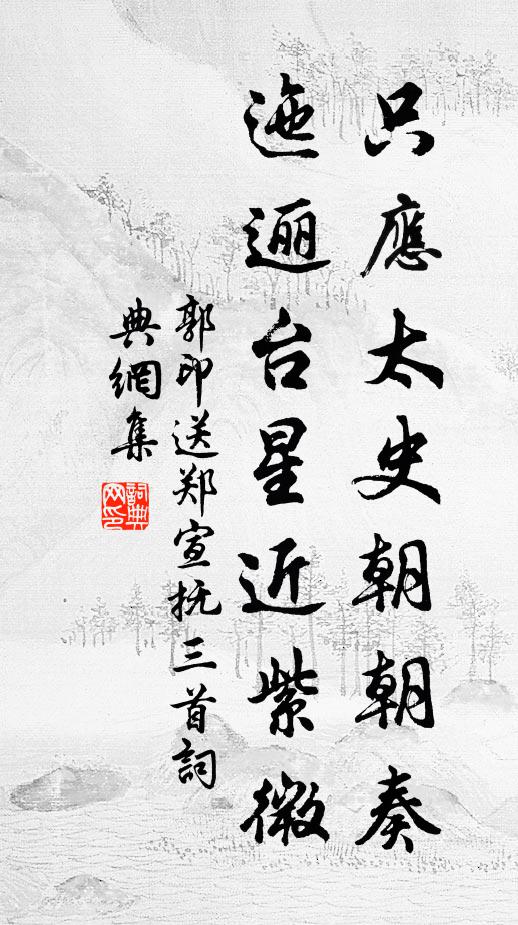 只應太史朝朝奏
迤逦台星近紫微
郭印送郑宣抚三首詞
典網集
詞典
网印